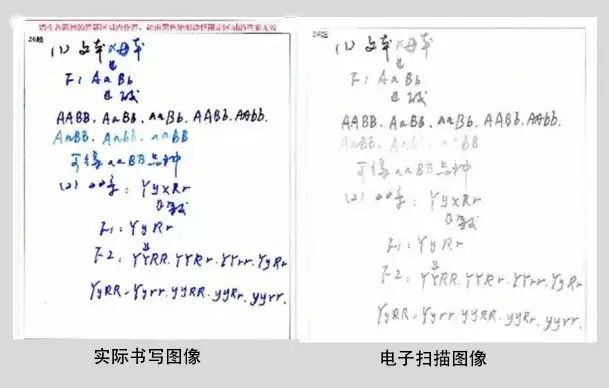 请在各题目的答题区域内作答，超出黑色矩形边框限定区域的答案无效
26题
(1) 父本 × 母本
F1 AaBb
AABB. AaBB. aaBb. AABb. AAbb.
AaBB. Aabb. aaBB
可得 aaBB 品种
(2)
YyxRr
F1: YyRr
F2: YYRR. YYRr. YYrr. YyRr
YyRR. Yyrr. yyRR. yyRr. yyrr.
实际书写图像
26题
(1) 父本 × 母本
F1 AaBb
AABB. AaBB. aaBb. AABb. AAbb.
AaBB. Aabb. aaBB
可得 aaBB 品种
(2)
YyxRr
F1: YyRr
F2: YYRR. YYRr. YYrr. YyRr
YyRR. Yyrr. yyRR. yyRr. yyrr.
电子扫描图像